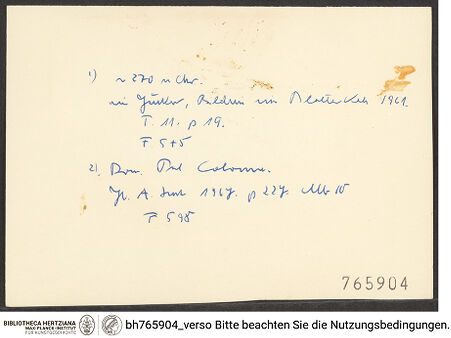 1) ~ 270 n Chr.
in Jücker, Bildnis im Blätterkelch 1961.
T. 11. p 19.
F 545
2). Rom. Pal Colonna.
A. 1967. p 227. Abb 10
F 598
765904
BIBLIOTHECA HERTZIANA
MAX-PLANCK-INSTITUT
FÜR KUNSTGESCHICHTE
bh765904_verso Bitte beachten Sie die Nutzungsbedingungen.